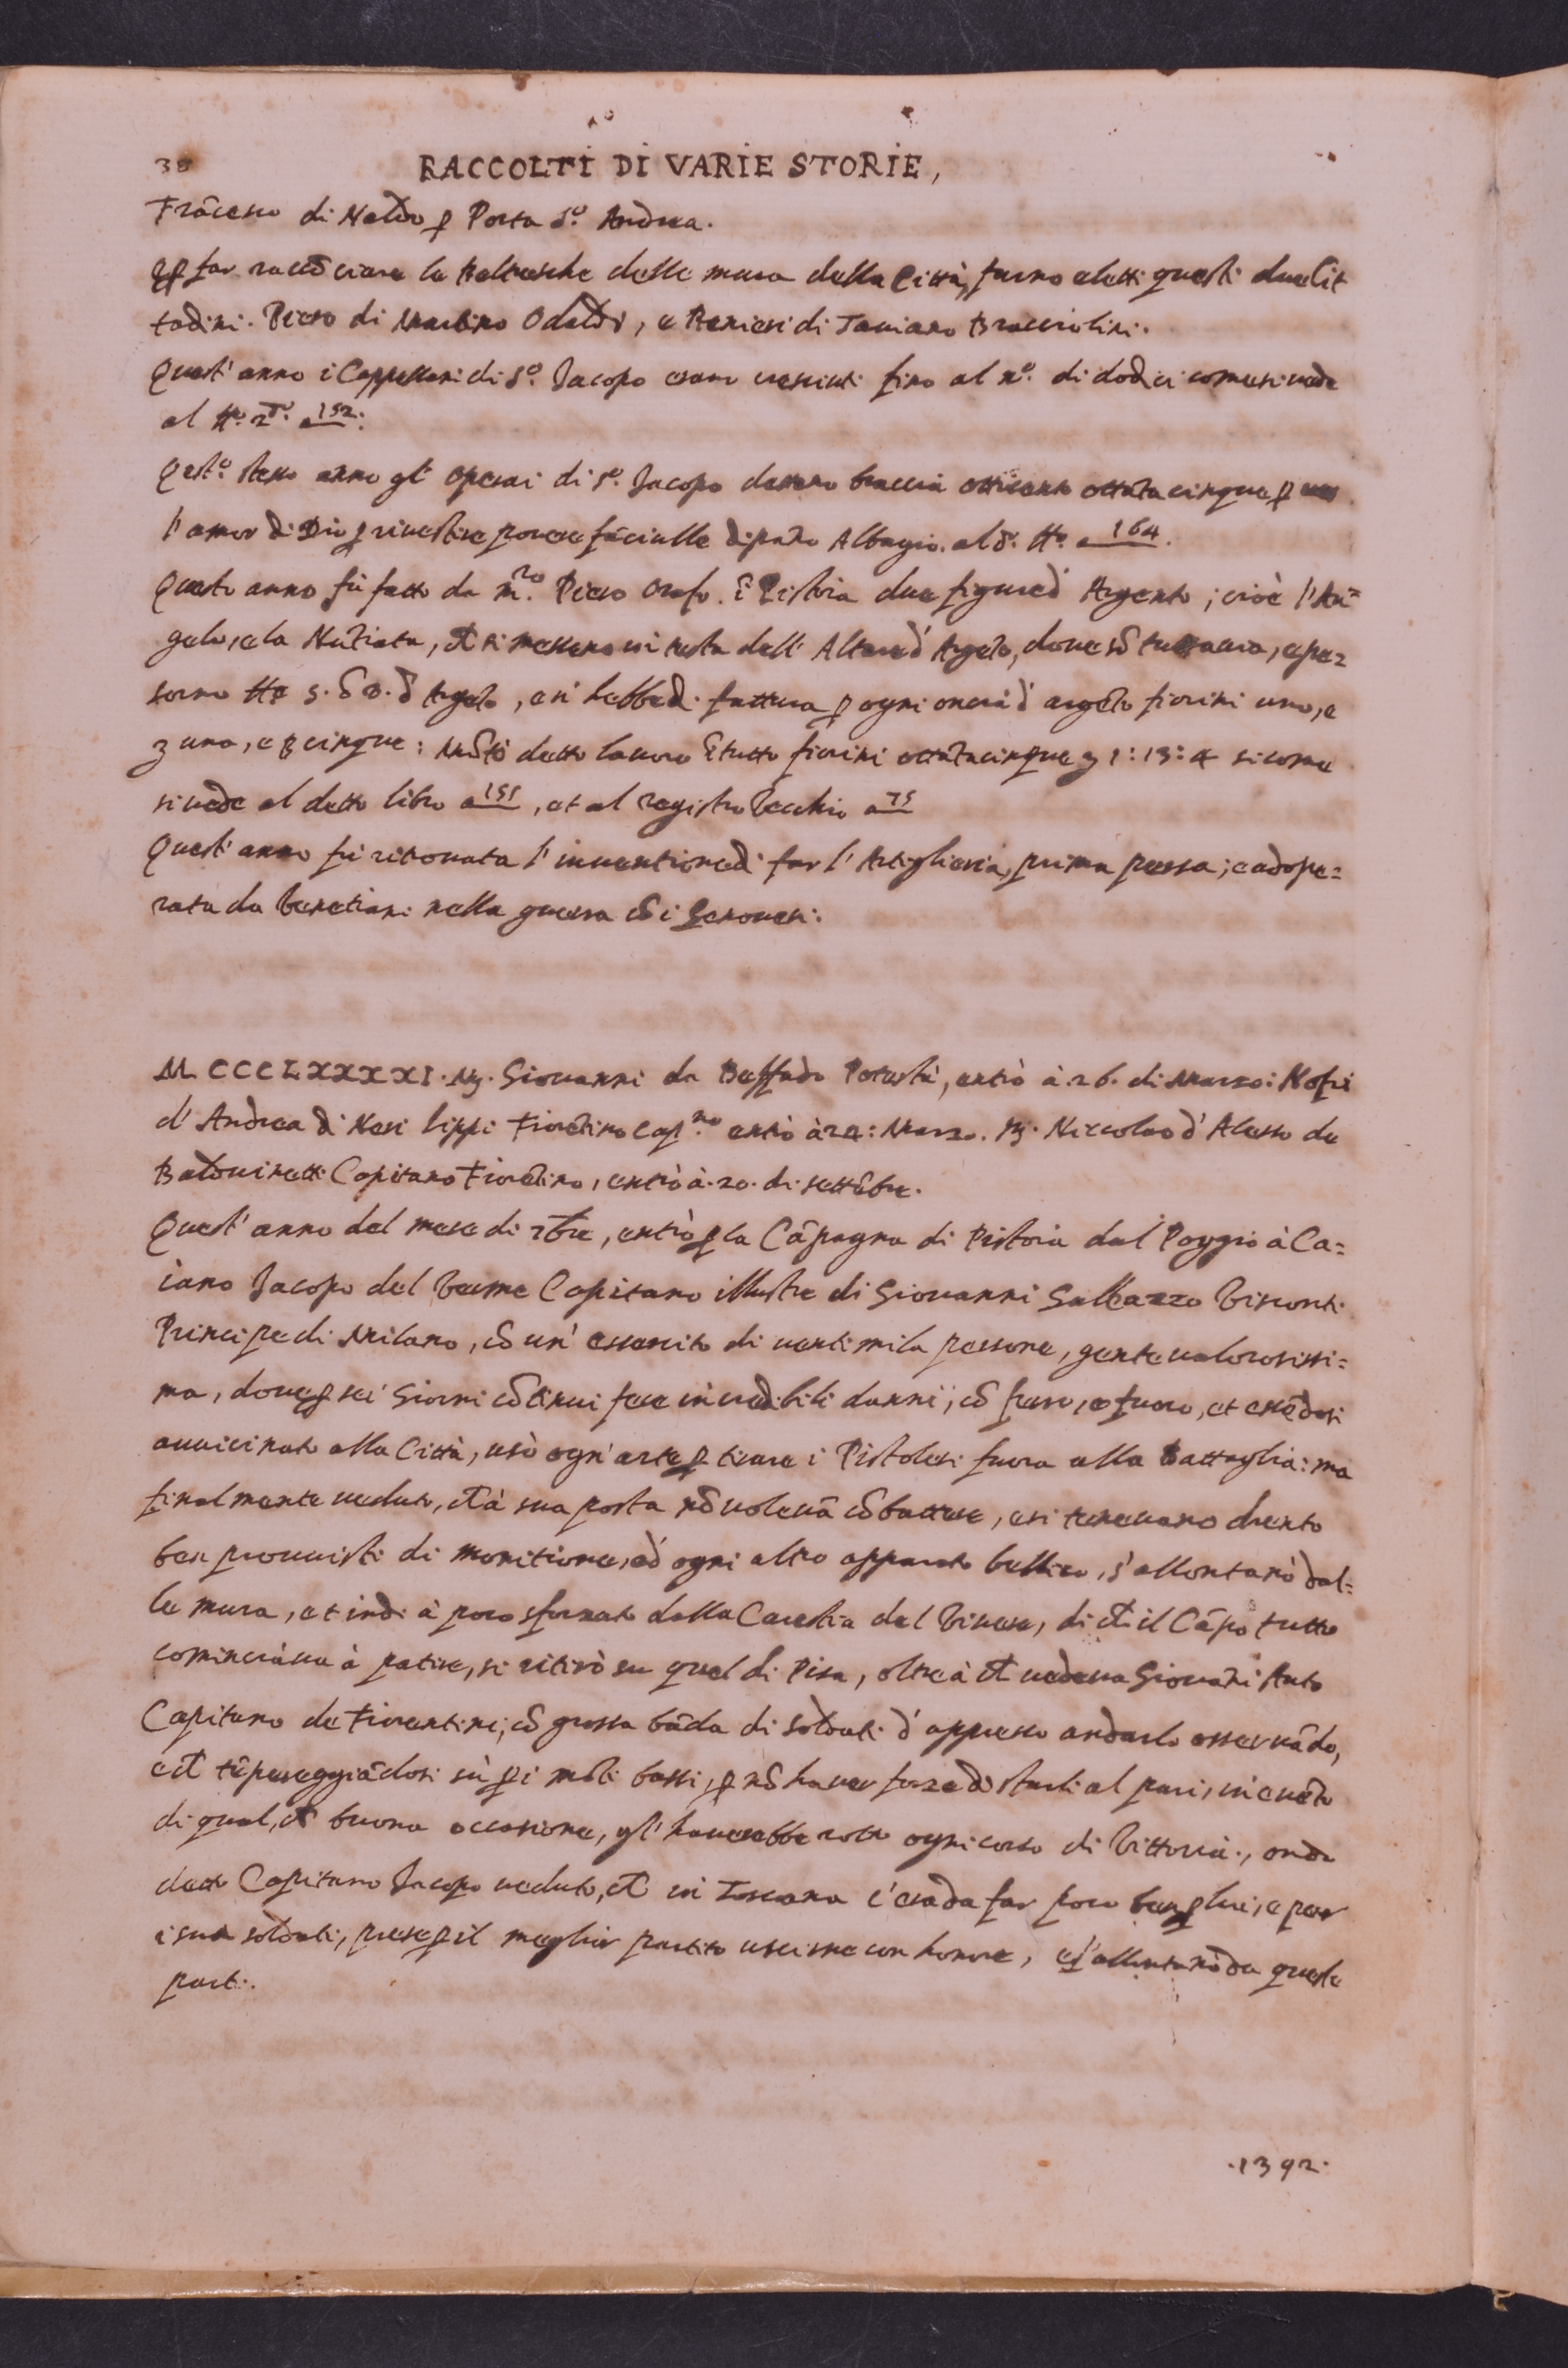 38 RACCOLTI DI VARIE STORIE,
Frãcesco di Naldo ꝑ Porta S.º Andrea.
ꝑ far raccõciare le Beltresche delle mura della Città, furno eletti questi due Cit
tadini. Piero di Martino Odaldi, e Ranieri di Taviano Bracciolini.
Quest'anno i Cappellani di S.º Jacopo erano cresciuti fino al nº. di dodici come si uede
al 152.
Qest.º stesso anno gl'Operai di S.º Jacopo dettero braccia otticento ottãtacinque ꝑ
l'amor di Dio ꝑ riuestire pouere fãciulle di pãno Albagio. al d.º a 164.
Questo anno fù fatto da m.ro Piero Orafo. ĩ Pistoia due figure d'Argento; cioè l'An=
gelo, e la Nũtiata, et si messero in testa dell'Altare d'Argẽto, doue sõ tuttauia, e pe=
sorno 5. d'Argẽto, e si hebbe di fattura ꝑ ogni oncia d'argẽto fiorini uno, e
uno, e cinque: Mõtò detto lauoro ĩ tutto fiorini ottãtacinque 1:13:4 si come
si uede al detto libro a 151, et al registro Vecchio a 75
Quest'anno fù ritrouata l'inuentione di far l'Artiglieria, prima persa; e adope=
rata da Venetiani nella guerra cõ i Genouesi.
MCCCLXXXXI. M. Giouanni da Potestà, entrò à 26. di Marzo: Nofri
d'Andrea di Neri Lippi Fiorẽtino Cap.no entrò à 24: Marzo. M. Niccolao d'Alesso de
Baldouinetti Capitano Fiorẽtino, entrò à 20. di settẽbre.
Quest'anno del mese di 7bre, entrò ꝑ la Cãpagna di Pistoia dal Poggio à Ca=
iano Jacopo del Verme Capitano illustre di Giouanni Galeazzo Visconti
Principe di Milano, cõ un'essercito di uentimila persone, gente ualorosissi=
ma, doue ꝑ sei Giorni cõtinui fece incredibili danni, cõ ferro, e fuoco, et essẽdosi
auuicinato alla Città, usò ogn'arte ꝑ tirare i Pistolesi fuora alla Battaglia: ma
finalmente ueduto, ch'à sua posta nõ uoleuã cõbattere, e si teneuano drento
ben prouuisti di monitione, ed ogni altro apparato bellico, s'allontanò dal=
le mura, et indi à poco sforzato dalla Carestia del Viuere, di ch'il Cãpo tutto
cominciàua à patire, si ritirò su quel di Pisa, oltre à ch'uedeua Giouãni Auto
Capitano de Fiorentini; cõ grossa bãda di soldati d'appresso andarlo osseruãdo,
e ch'tẽporeggiãdosi sù ꝑ i mõti bassi, ꝑ nõ hauer forze di starli al pari, in euẽto
di qual, ch'buona occasione, gl'hauerebbe rotto ogni corso di Vittoria., onde
detto Capitano Jacopo ueduto, ch'in Toscana c'era da far poco ben ꝑ lui, e per
i sua soldati, prese ꝑ il meglior partito uscirne con honore, e s'allontanò da queste
parti.
.1392.